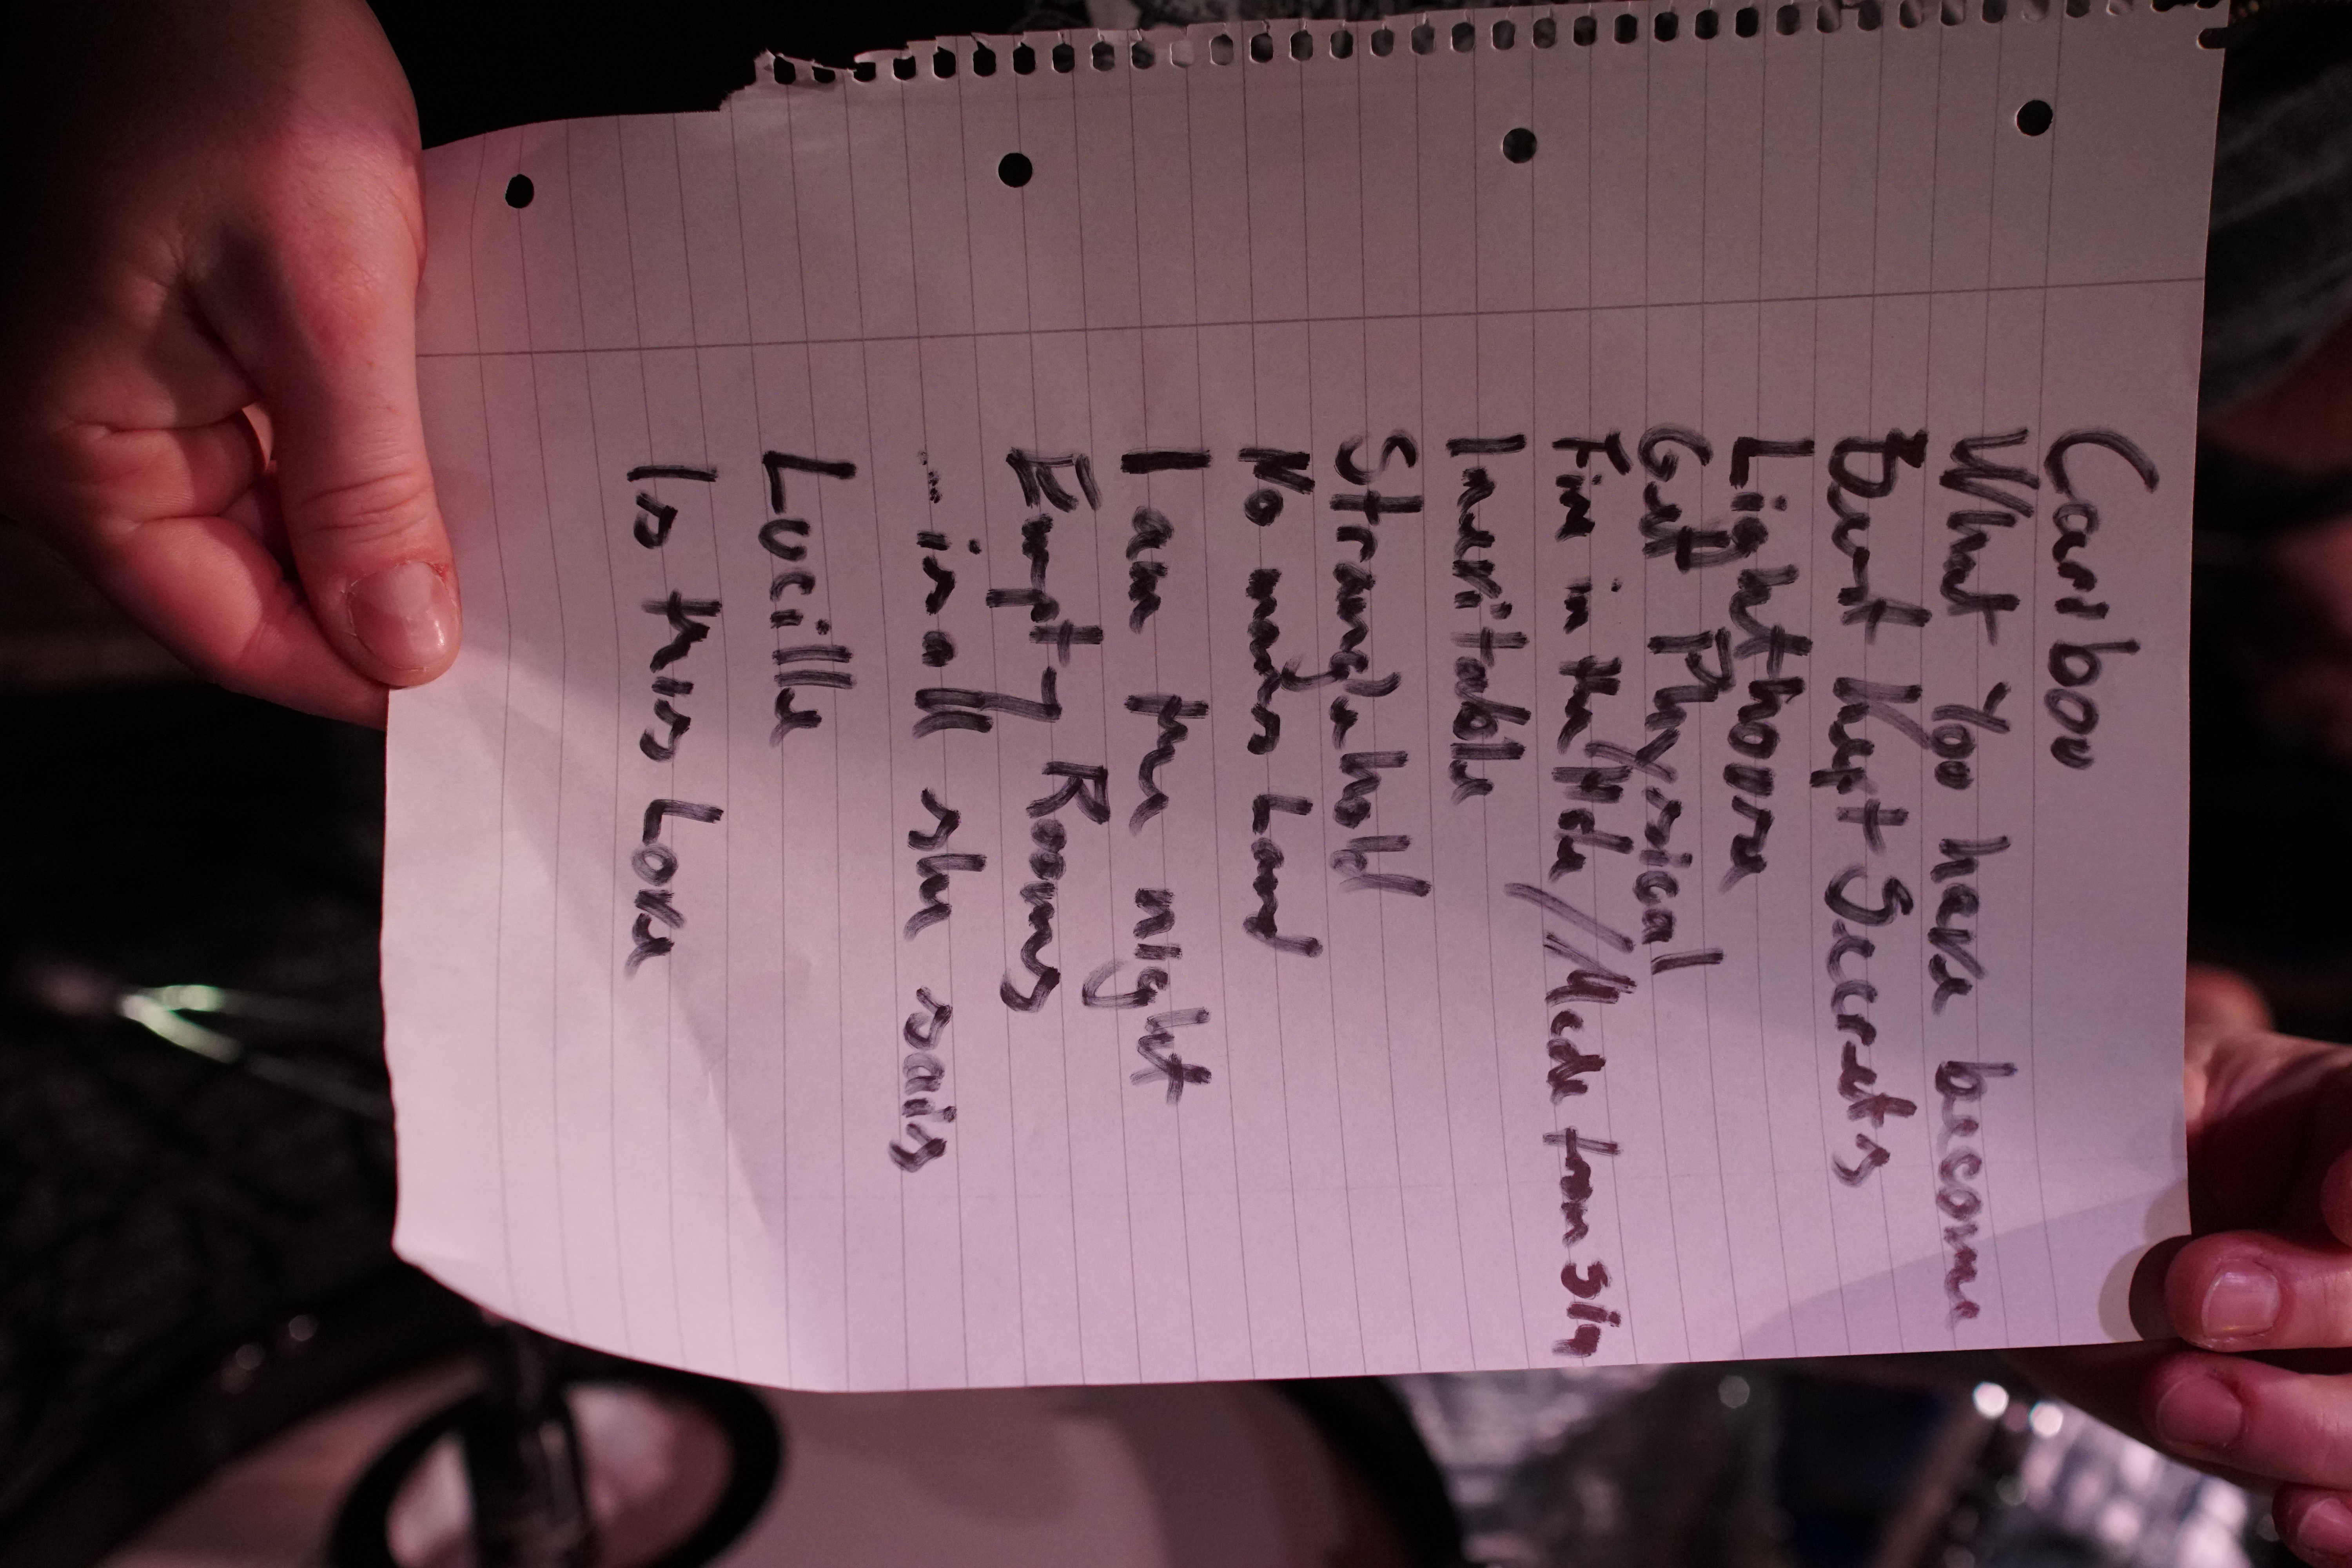 Caribou
What You have become
Best Kept Secrets
Lighthouse
Get Physical
Fire in the Hole // Made from Sin
Inevitable
Stranglehold
No mans Land
I am the night
Empty Rooms
... in all she said
Lucille
Is this Love